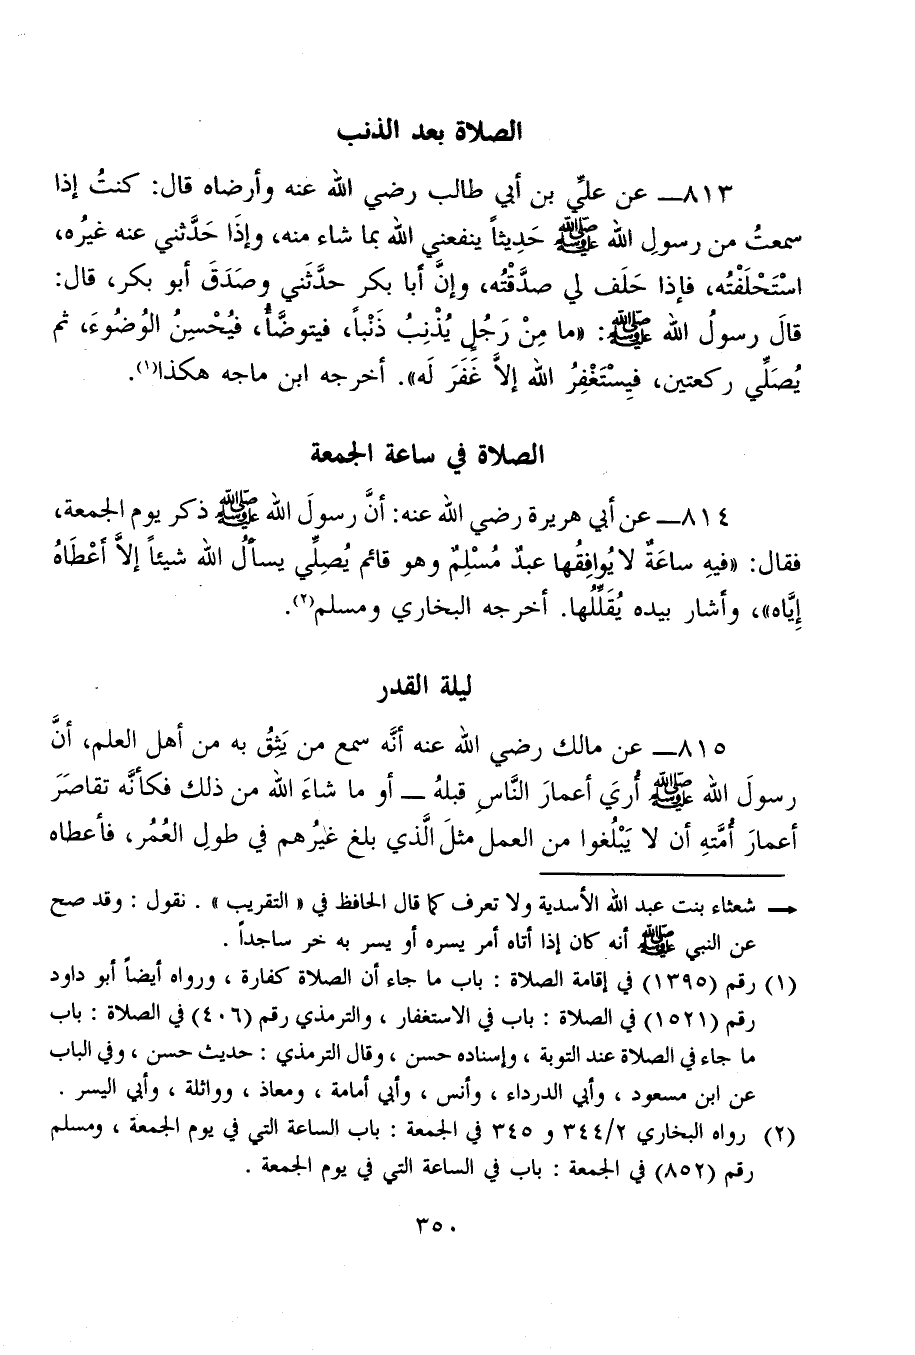 الصلاة بعد الذنب
٨١٣ـــ عن عليِّ بن أبي طالب رضي الله عنه وأرضاه قال: كنتُ إذا
سمعتُ من رسولِ الله ﷺ حَدِيثاً ينفعني الله بما شاء منه، وإذَا حَدَّثني عنه غيرُه،
اسْتَحْلَفْتُه، فإذا حَلَف لي صدَّقْتُه، وإنَّ أبا بكر حدَّثَني وصَدَقَ أبو بكر، قال:
قالَ رسولُ الله ﷺ: «ما مِنْ رَجُلٍ يُذْنِبُ ذَنْباً، فيتوضَّأُ، فيُحْسِنُ الوُضُوءَ، ثم
يُصَلِّي ركعتين، فيِسْتَغْفِرُ الله إلاَّ غَفَرَ لَه». أخرجه ابن ماجه هكذا(١).
الصلاة في ساعة الجمعة
٨١٤ـــ عن أبي هريرة رضي الله عنه: أنَّ رسولَ الله ﷺ ذكر يوم الجمعة،
فقال: «فيهِ ساعَةٌ لا يُوافِقُها عبدٌ مُسْلِمٌ وهو قائم يُصلِّي يسألُ الله شيئاً إلاَّ أعْطَاهُ
إيَّاه»، وأشار بيده يُقَلِّلُها. أخرجه البخاري ومسلم(٢).
ليلة القدر
٨١٥ـــ عن مالك رضي الله عنه أنَّه سمع من يَثِقُ به من أهل العلم، أنَّ
رسولَ الله ﷺ أُريَ أعمارَ النَّاسِ قبلهُ ـــ أو ما شاءَ الله من ذلك فكأنَّه تقاصَرَ
أعمارَ أُمَّتهِ أن لا يَبْلُغوا من العمل مثلَ الَّذي بلغ غيرُهم في طولِ العُمُر، فأعطاه
← شعثاء بنت عبد الله الأسدية ولا تعرف كما قال الحافظ في « التقريب » . نقول : وقد صح
عن النبي ﷺ أنه كان إذا أتاه أمر يسره أو يسر به خر ساجداً .
(١) رقم (١٣٩٥) في إقامة الصلاة : باب ما جاء أن الصلاة كفارة ، ورواه أيضاً أبو داود
رقم (١٥٢١) في الصلاة : باب في الاستغفار ، والترمذي رقم (٤٠٦) في الصلاة : باب
ما جاء في الصلاة عند التوبة ، وإسناده حسن ، وقال الترمذي : حديث حسن ، وفي الباب
عن ابن مسعود ، وأبي الدرداء ، وأنس ، وأبي أمامة ، ومعاذ ، وواثلة ، وأبي اليسر .
(٢) رواه البخاري ٣٤٤/٢ و ٣٤٥ في الجمعة : باب الساعة التي في يوم الجمعة ، ومسلم
رقم (٨٥٢) في الجمعة : باب في الساعة التي في يوم الجمعة .
٣٥٠